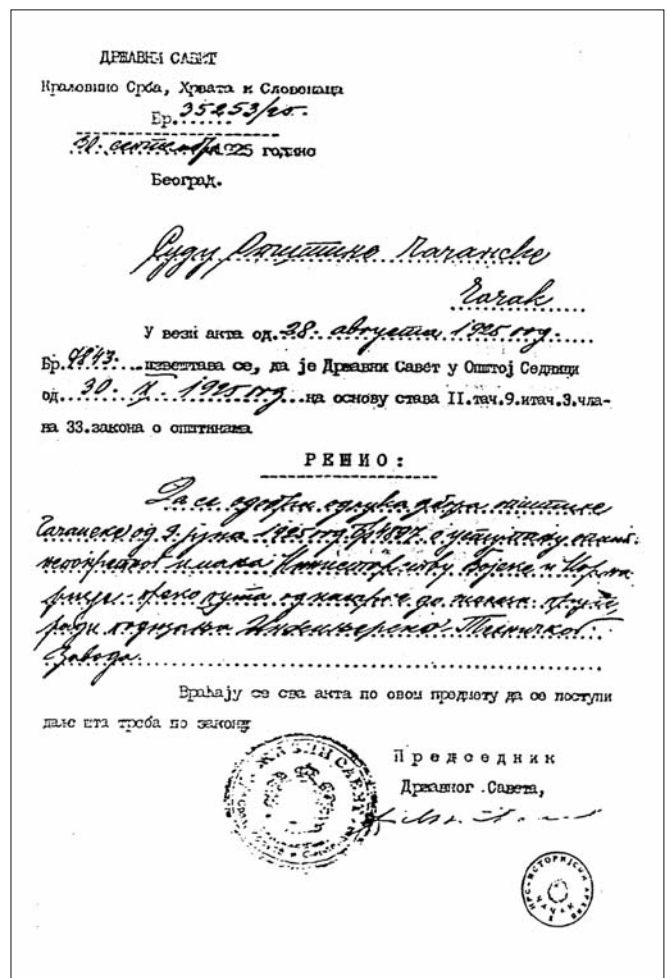 ДРЖАВНИ САВЕТ
Краљевине Срба, Хрвата и Словенаца
Бр. 35253/25.
30. септембра 1925 године
Београд.
Суду Општине Чачанске
Чачак
У вези акта од 28. августа 1925 год.
Бр. 9843. извештава се, да је Државни Савет у Општој Седници
од 30. X. 1925 год. на основу става II.тач.9.итач.3.чла-
на 33.закона о општинама
РЕШИО:
Да се одобри одлука збора општине
Чачанске од 9. јуна 1925 год. Бр. о уступању општ.
непокретног имања Министарству Војске и Морна
рице преко пута од касарне до желез. пруге,
ради подизања Инжињерско Техничког
Завода.
Враћају се сва акта по овом предмету да се поступи
даље шта треба по закону
Председник
Државног Савета,
ДРЖАВНИ САВЕТ
ИСТОРИЈСКИ АРХИВ